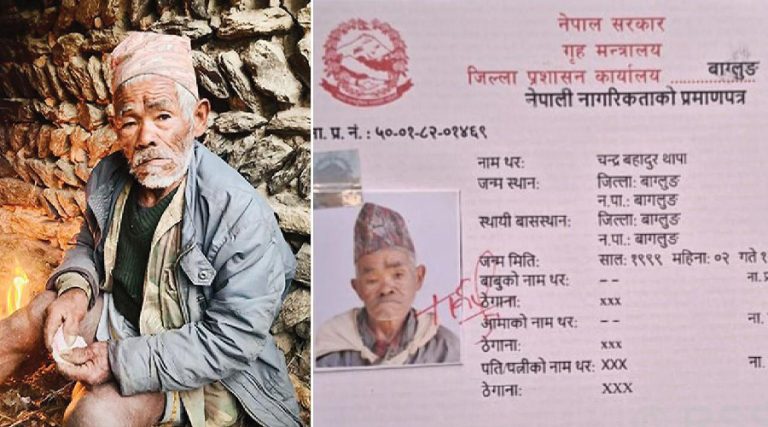 नेपाल सरकार
गृह मन्त्रालय
जिल्ला प्रशासन कार्यालय बाग्लुङ
नेपाली नागरिकताको प्रमाणपत्र
ना. प्र. नं. : ५०-०१-८२-०१४६९
नाम थर: चन्द्र बहादुर थापा
जन्म स्थान: जिल्ला: बाग्लुङ
न.पा.: बागलुङ
स्थायी बासस्थान: जिल्ला: बाग्लुङ
न.पा.: बागलुङ
जन्म मिति: साल: १९९९ महिना: ०२ गते
बाबुको नाम थर: -- ना.
ठेगाना: xxx
आमाको नाम थर: -- ना.
ठेगाना: xxx
पति/पत्नीको नाम थर: XXX ना.
ठेगाना: XXX